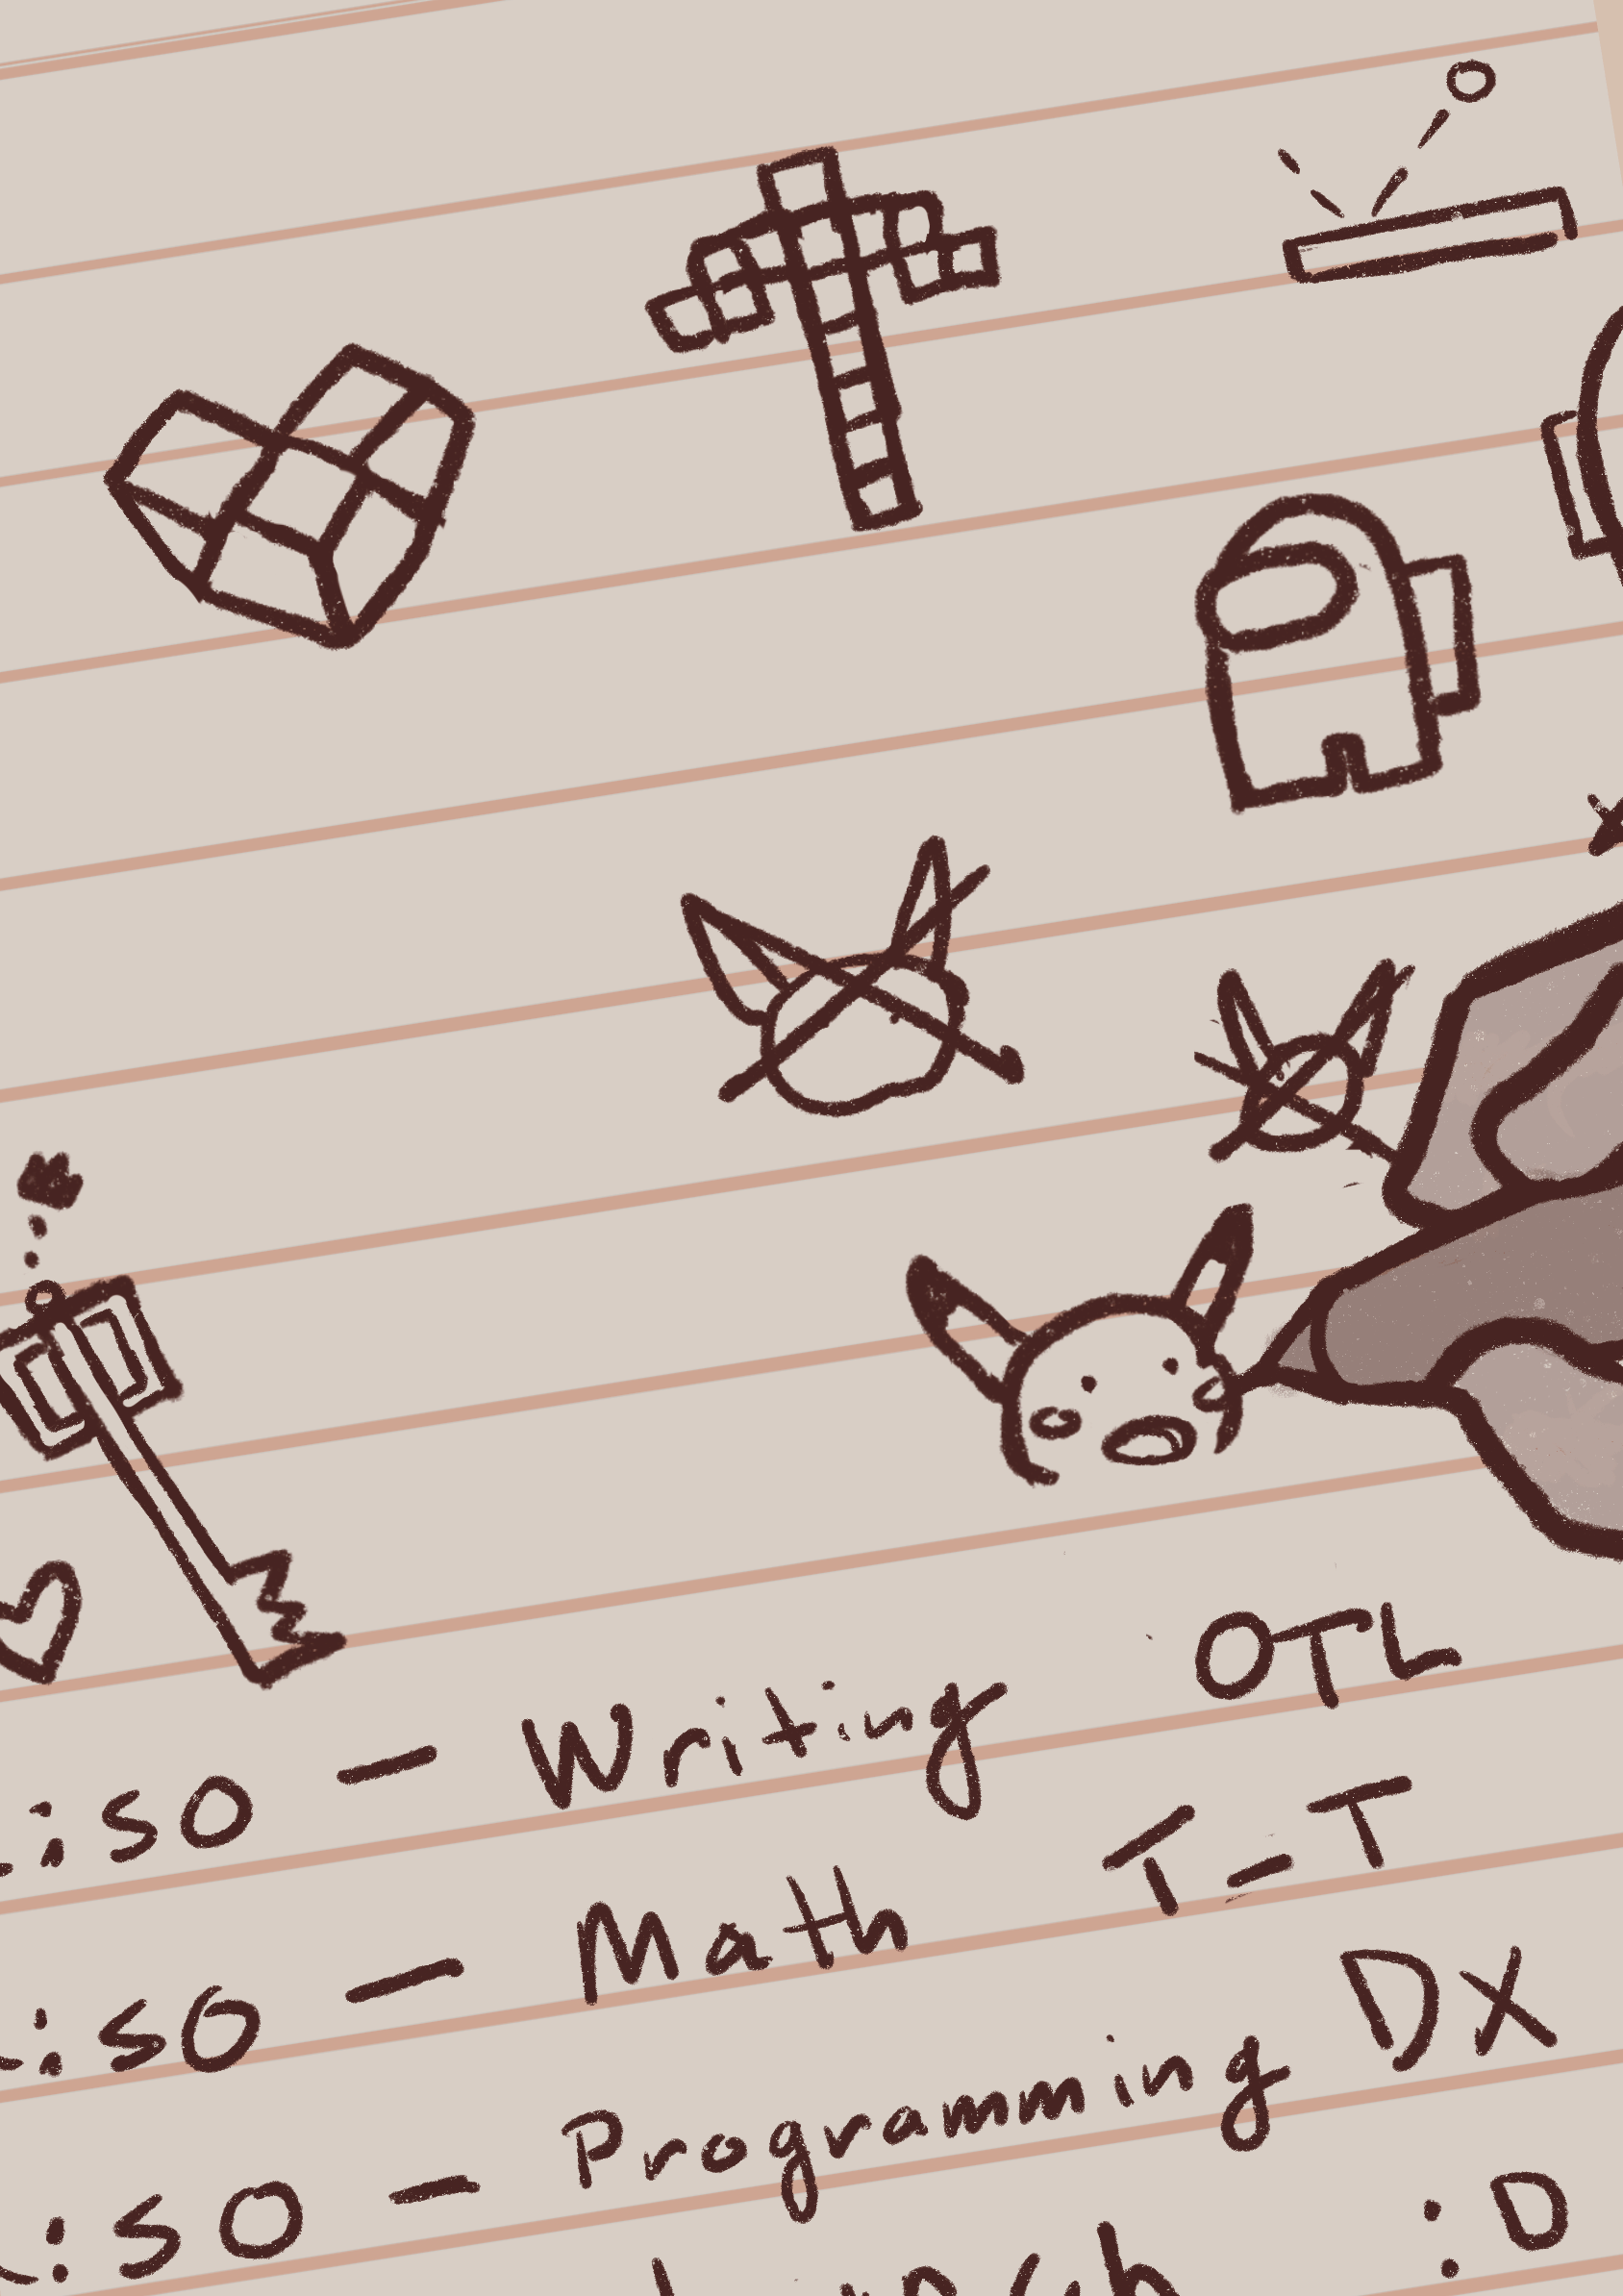 :50 - Writing OTL
:50 - Math T-T
:50 - Programming DX
:D